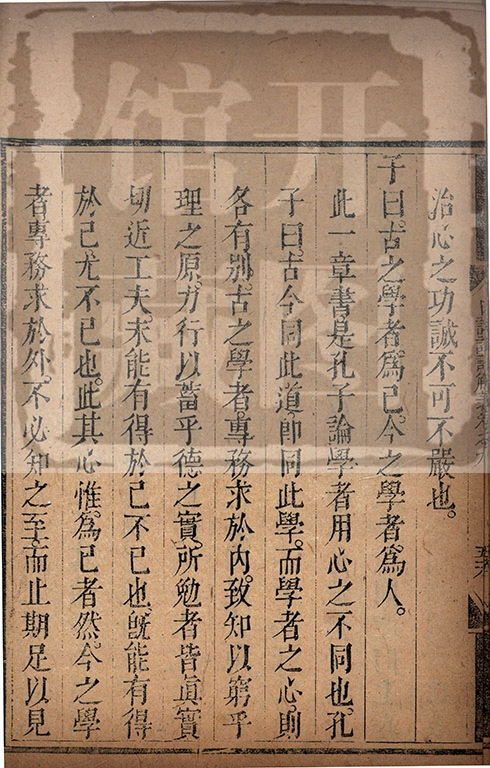 治心之功誠不可不嚴也。
子曰。古之學者爲己。今之學者。爲人。
此一章書。是孔子論學者用心之不同也。孔
子曰。古今同此道。卽同此學。而學者之心。則
各有別。古之學者。專務求於內。致知以窮乎
理之原。力行以蓄乎德之實。所勉者皆眞實
切近工夫。未能有得於己不已也。旣能有得
於己尤不已也。此其心惟。爲己者然。今之學
者專務求於外。不必知之至而止期足以見